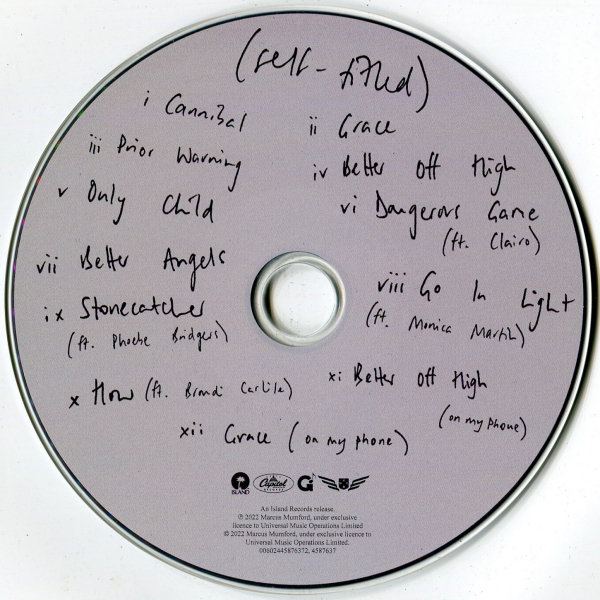 (self-titled)
i Cannibal
ii Grace
iii Prior Warning
iv Better Off High
v Only Child
vi Dangerous Game
(ft. Clairo)
vii Better Angels
viii Go In Light
(ft. Monica Martin)
ix Stonecatcher
(ft. Phoebe Bridgers)
x How (ft. Brandi Carlile)
xi Better Off High
(on my phone)
xii Grace (on my phone)
ISLAND
Capitol
RECORDS
G
An Island Records release.
℗ 2022 Marcus Mumford, under exclusive
licence to Universal Music Operations Limited.
© 2022 Marcus Mumford, under exclusive licence to
Universal Music Operations Limited.
00602445876372, 4587637